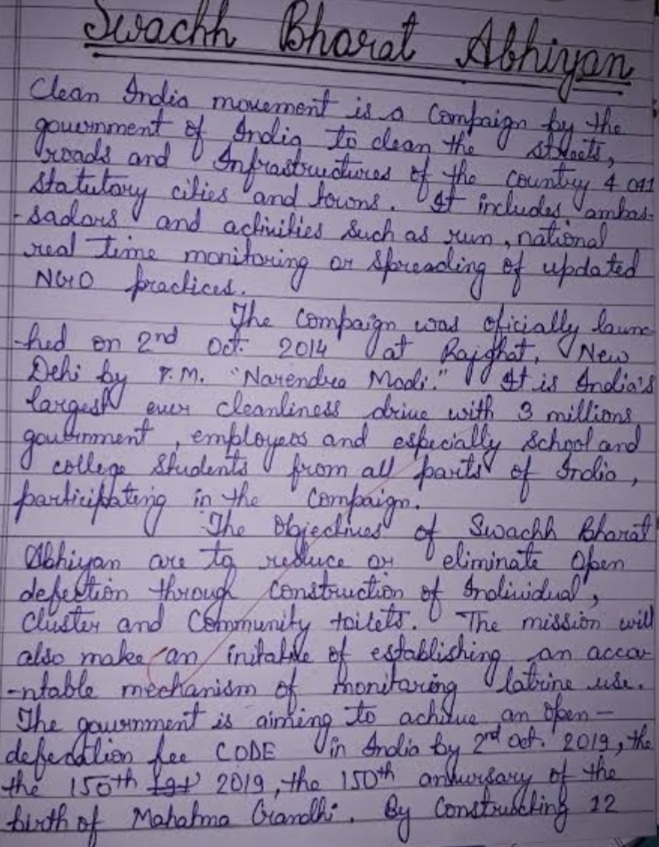 Swachh Bharat Abhiyan
Clean India movement is a Compaign by the
government of India to clean the streets,
roads and Infrastructures of the country 4 041
Statutory cities and towns. It includes ambas-
-sadors and activities such as run, national
real time monitoring or spreading of updated
NGO practices.
The Compaign was oficially launc
-hed on 2nd Oct. 2014 at Rajghat, New
Dehi by P.M. "Narendra Modi." It is India's
largest ever cleanliness drive with 3 millions
government, employees and especially School and
college students from all parts of India,
participating in the Compaign.
The Objectives of Swachh Bharat
Abhiyan are to reduce or eliminate Open
defection through Construction of Individual,
Cluster and Community toilets. The mission will
also make an initative of establishing an accou
-ntable mechanism of monitoring latrine use.
The government is aiming to achieve an Open-
defecation fee CODE in India by 2nd Oct. 2019, the
the 150th 2019, the 150th anniversary of the
birth of Mahatma Grandhi. By Constructing 12